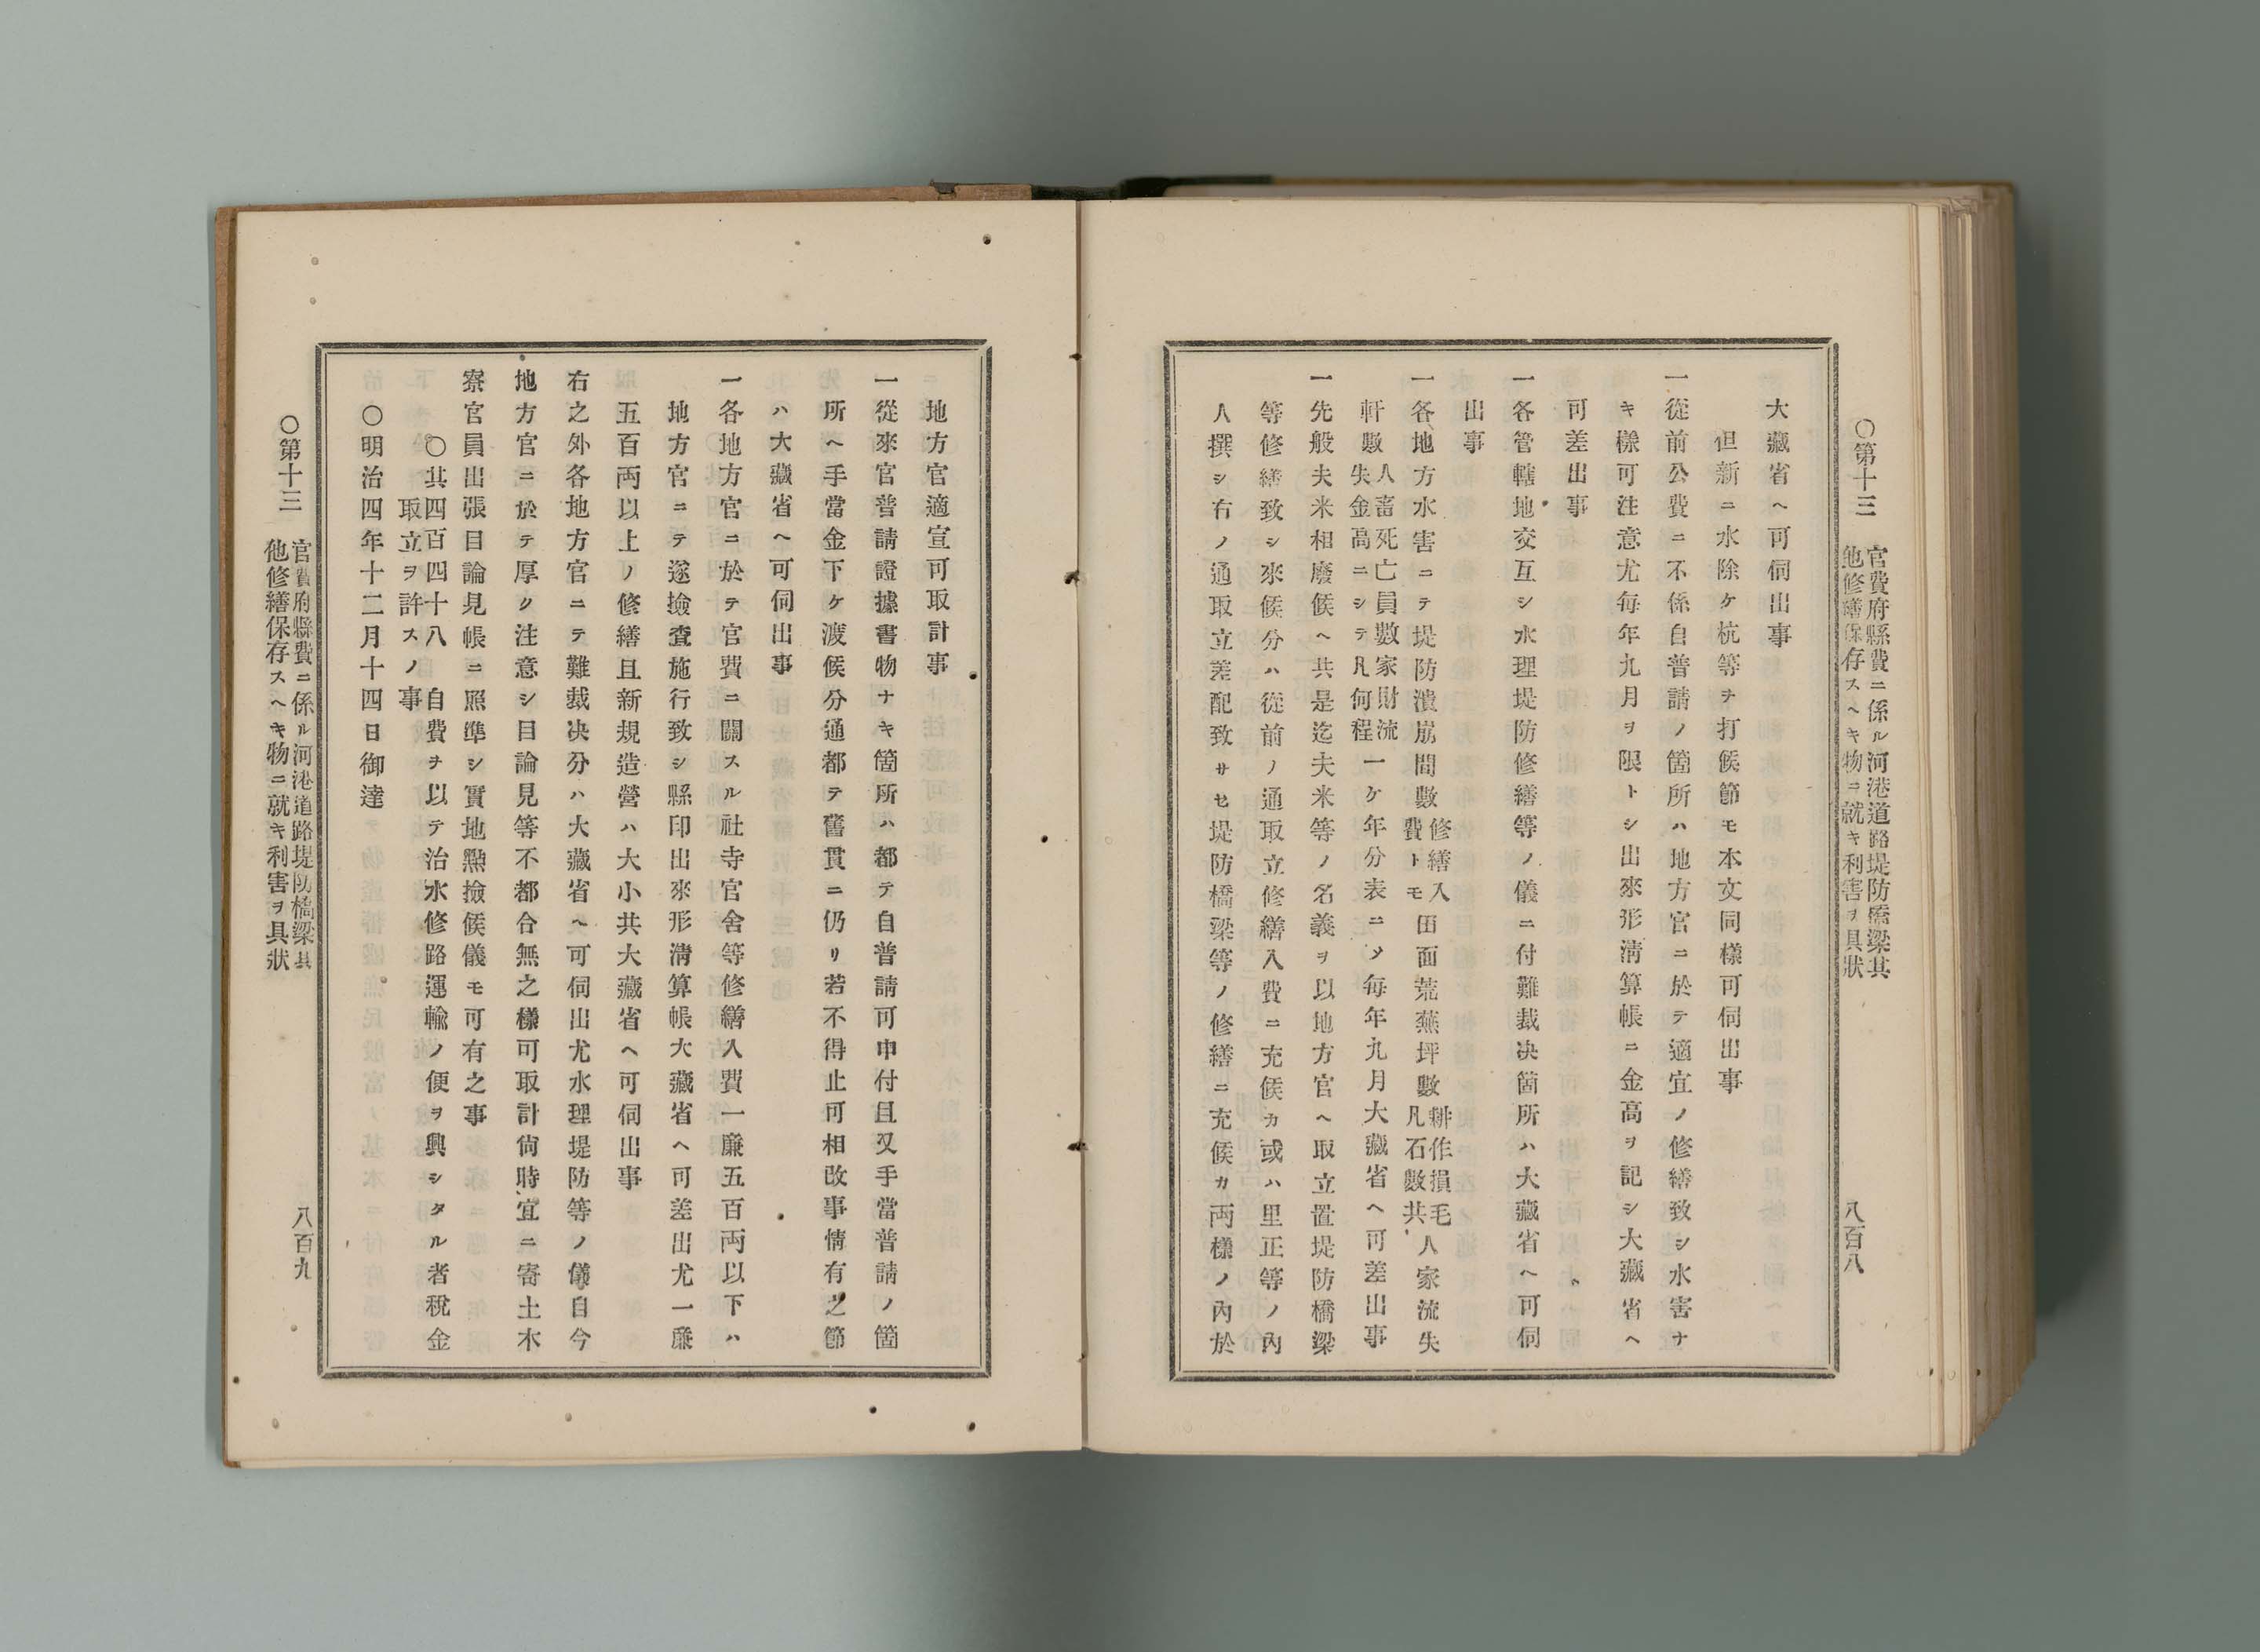 〇第十三 官費府縣費ニ係ル河港道路堤防橋梁其
他修繕保存スヘキ物ニ就キ利害ヲ具狀
八百八
大藏省ヘ可伺出事
但新ニ水除ケ杭等ヲ打候節モ本文同樣可伺出事
一從前公費ニ不係自普請ノ箇所ハ地方官ニ於テ適宜ノ修繕致シ水害ナ
キ樣可注意尤毎年九月ヲ限トシ出來形淸算帳ニ金高ヲ記シ大藏省ヘ
可差出事
一各管轄地交互シ水理堤防修繕等ノ儀ニ付難裁決箇所ハ大藏省ヘ可伺
出事
一各地方水害ニテ堤防潰崩間數修繕入費トモ田面荒蕪坪數耕作損毛凡石數共人家流失
軒數人畜死亡員數家財流失金高ニシテ凡何程一ケ年分表ニメ毎年九月大藏省ヘ可差出事
一先般夫米相廢候ヘ共是迄夫米等ノ名義ヲ以地方官ヘ取立置堤防橋梁
等修繕致シ來候分ハ從前ノ通取立修繕入費ニ充候カ或ハ里正等ノ內
人撰シ右ノ通取立差配致サセ堤防橋梁等ノ修繕ニ充候カ両樣ノ內於
地方官適宣可取計事
一從來官普請證據書物ナキ箇所ハ都テ自普請可申付且又手當普請ノ箇
所ヘ手當金下ケ渡候分通都テ舊貫ニ仍リ若不得止可相改事情有之節
ハ大藏省ヘ可伺出事
一各地方官ニ於テ官費ニ關スル社寺官舍等修繕入費一廉五百両以下ハ
地方官ニテ遂撿査施行致シ縣印出來形淸算帳大藏省ヘ可差出尤一廉
五百両以上ノ修繕且新規造營ハ大小共大藏省ヘ可伺出事
右之外各地方官ニテ難裁決分ハ大藏省ヘ可伺出尤水理堤防等ノ儀自今
地方官ニ於テ厚ク注意シ目論見等不都合無之樣可取計尙時宜ニ寄土木
寮官員出張目論見帳ニ照準シ實地㸃撿候儀モ可有之事
〇其四百四十八 自費ヲ以テ治水修路運輸ノ便ヲ興シタル者稅金
取立ヲ許スノ事
〇明治四年十二月十四日御達
〇第十三 官費府縣費ニ係ル河港道路堤防橋梁其
他修繕保存スヘキ物ニ就キ利害ヲ具狀
八百九